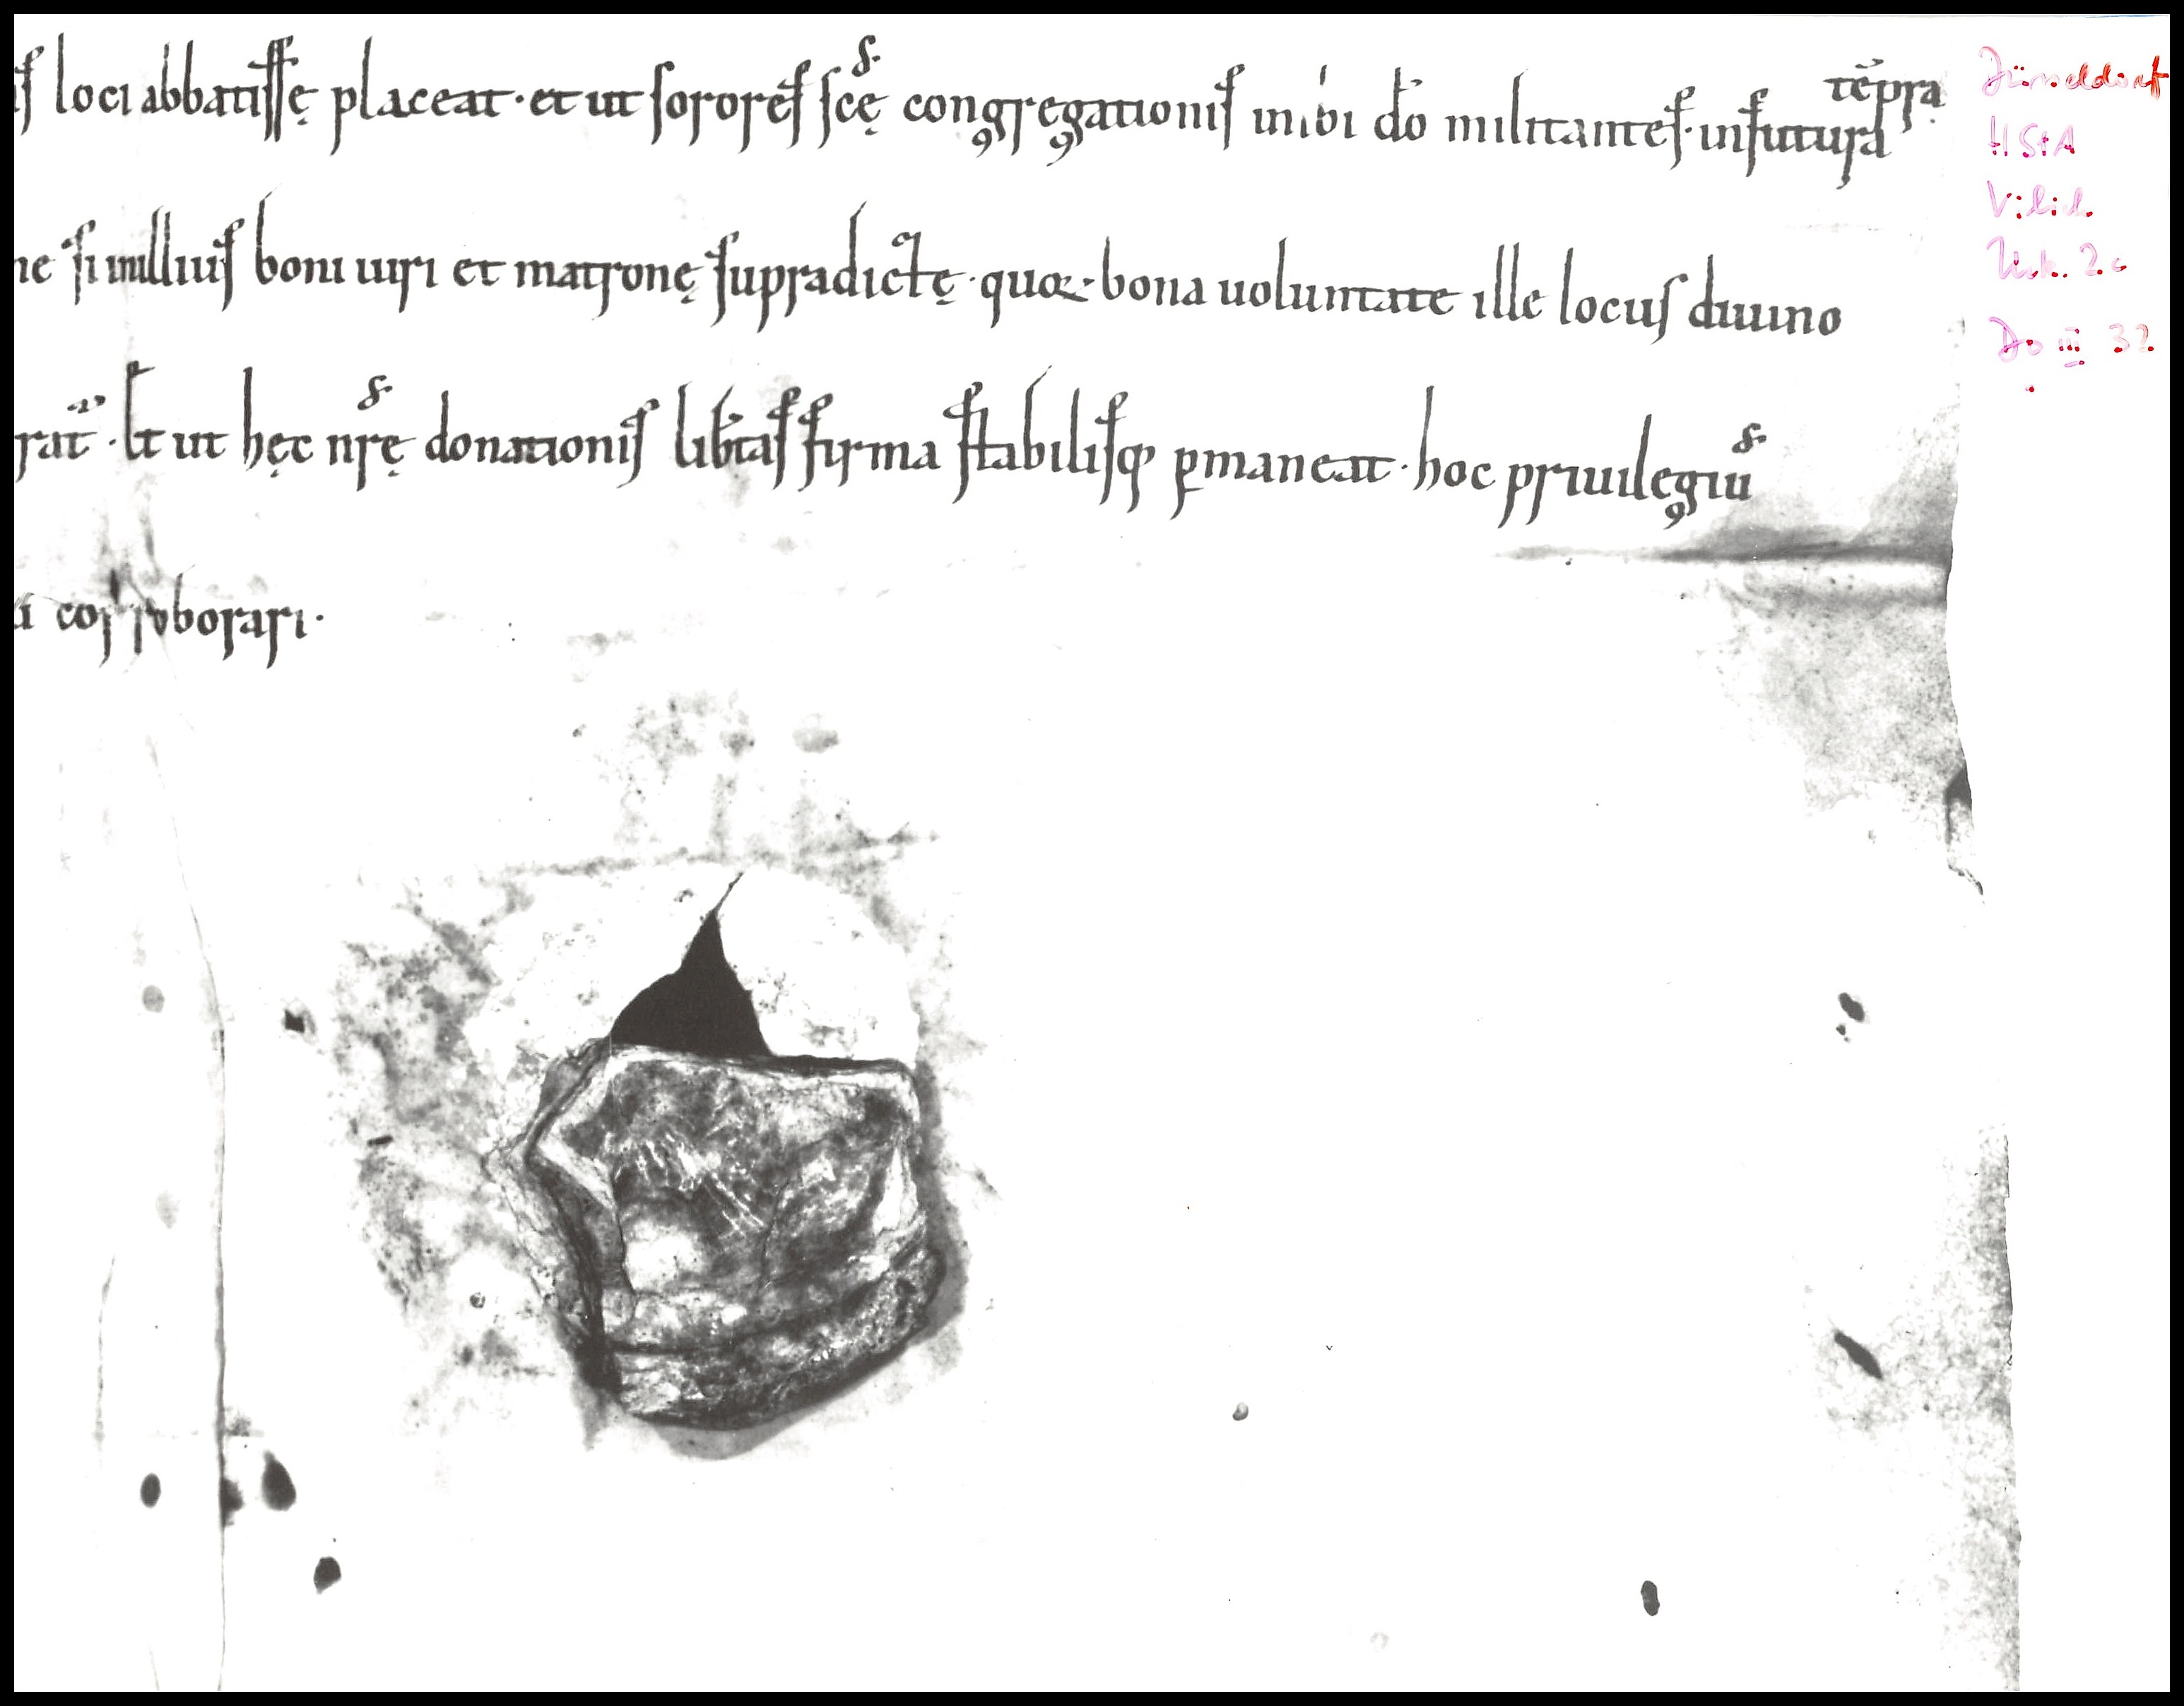 ıſ loci abbatiſſę placeat · et ut ſororeſ ſcę̄ congregationiſ inibi dō militanteſ · in futura tēpra
ne ſimilliuſ boni uiri et matronę ſupradictę · quoꝝ · bona uoluntate ille locuſ diuino
rat̄ · Et ut hęc nr̄ę donationiſ lib̄taſ firma ſtabiliſq; ꝑmaneat · hoc priuilegiū
a corroborari ·
Düsseldorf
HStA
Vilich
Urk. 2c
Do III 32